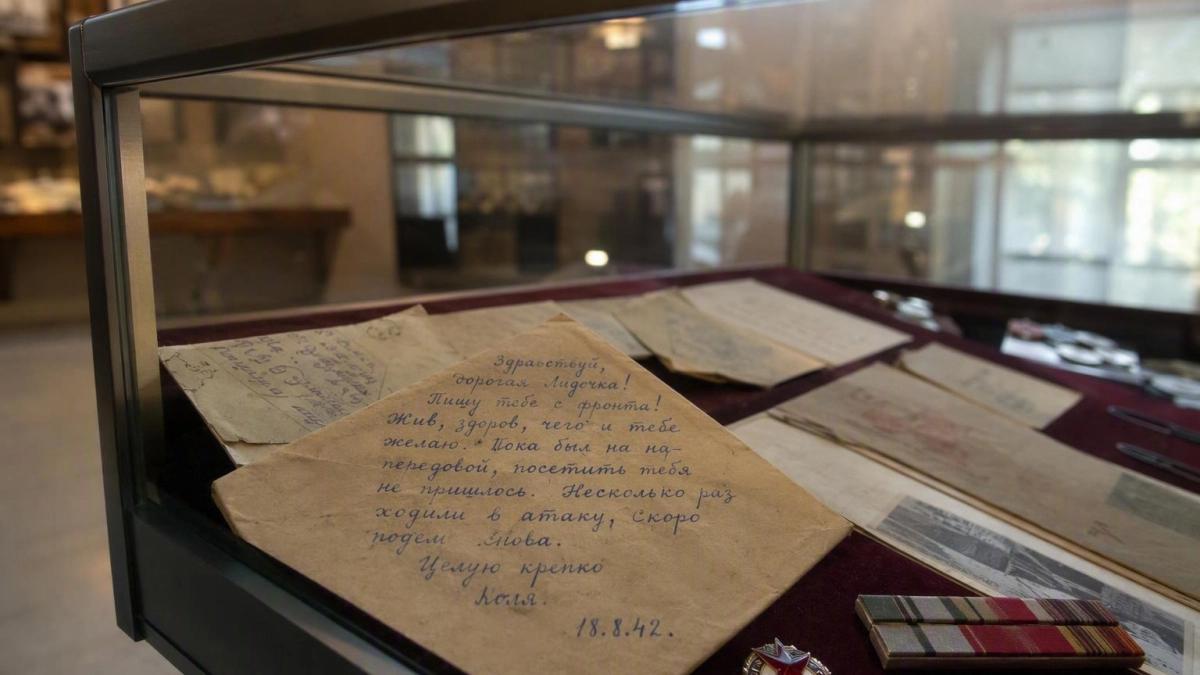 Здравствуй,
дорогая Лидочка!
Пишу тебе с фронта!
Жив, здоров, чего и тебе
желаю. Пока был на на-
передовой, посетить тебя
не пришлось. Несколько раз
ходили в атаку, скоро
подем снова.
Целую крепко
Коля.
18.8.42.